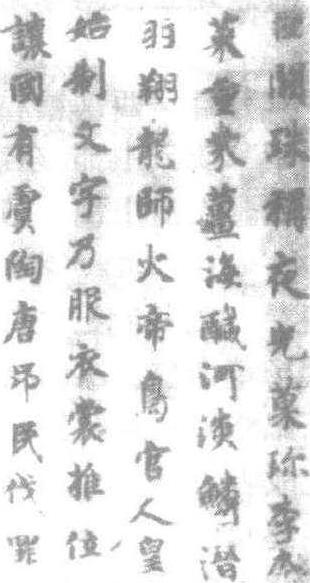 巨闕珠稱夜光菓珎李柰
菜重芥薑海醎河淡鱗潛
羽翔龍師火帝鳥官人皇
始制文字乃服衣裳推位
讓國有虞陶唐吊民伐罪